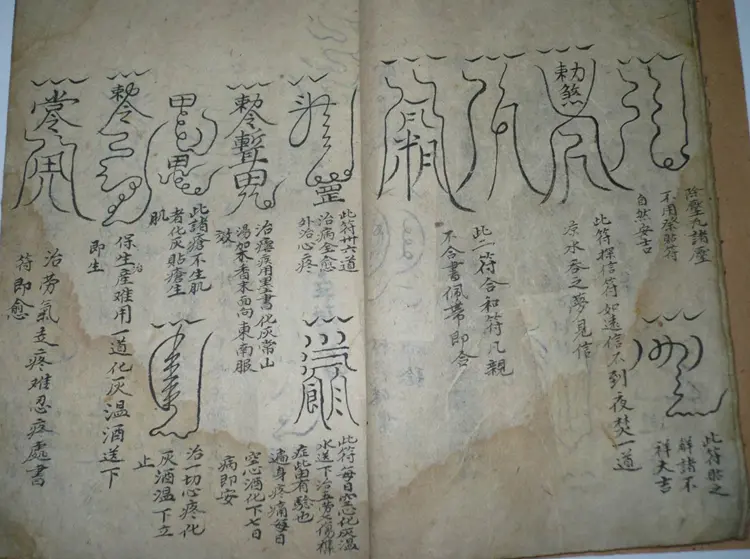 除壓凡諸壓
不用祭貼符
自然安吉
勅煞
此符探信符如遠信不到夜焚一道
涼水吞之夢見信
此二符合和符凡親
不合書佩帶即合
此符貼之
解諸不
祥大吉
罡
此符卅六道
治病全愈
外治心疼
勅令
治瘧疾用墨書化灰常山
湯架香末面向東南服
此諸瘡不生肌
者化灰貼瘡生
肌
勅令
保生産难用一道化灰温酒送下
即生
治劳氣走疼难忍疼處書
符即愈
此符每日空心化灰温
水送下治五劳七傷
症此由有驗也
遍身疼痛每日
空心酒化下七日
病即安
治一切心疼化
灰酒温下立
止